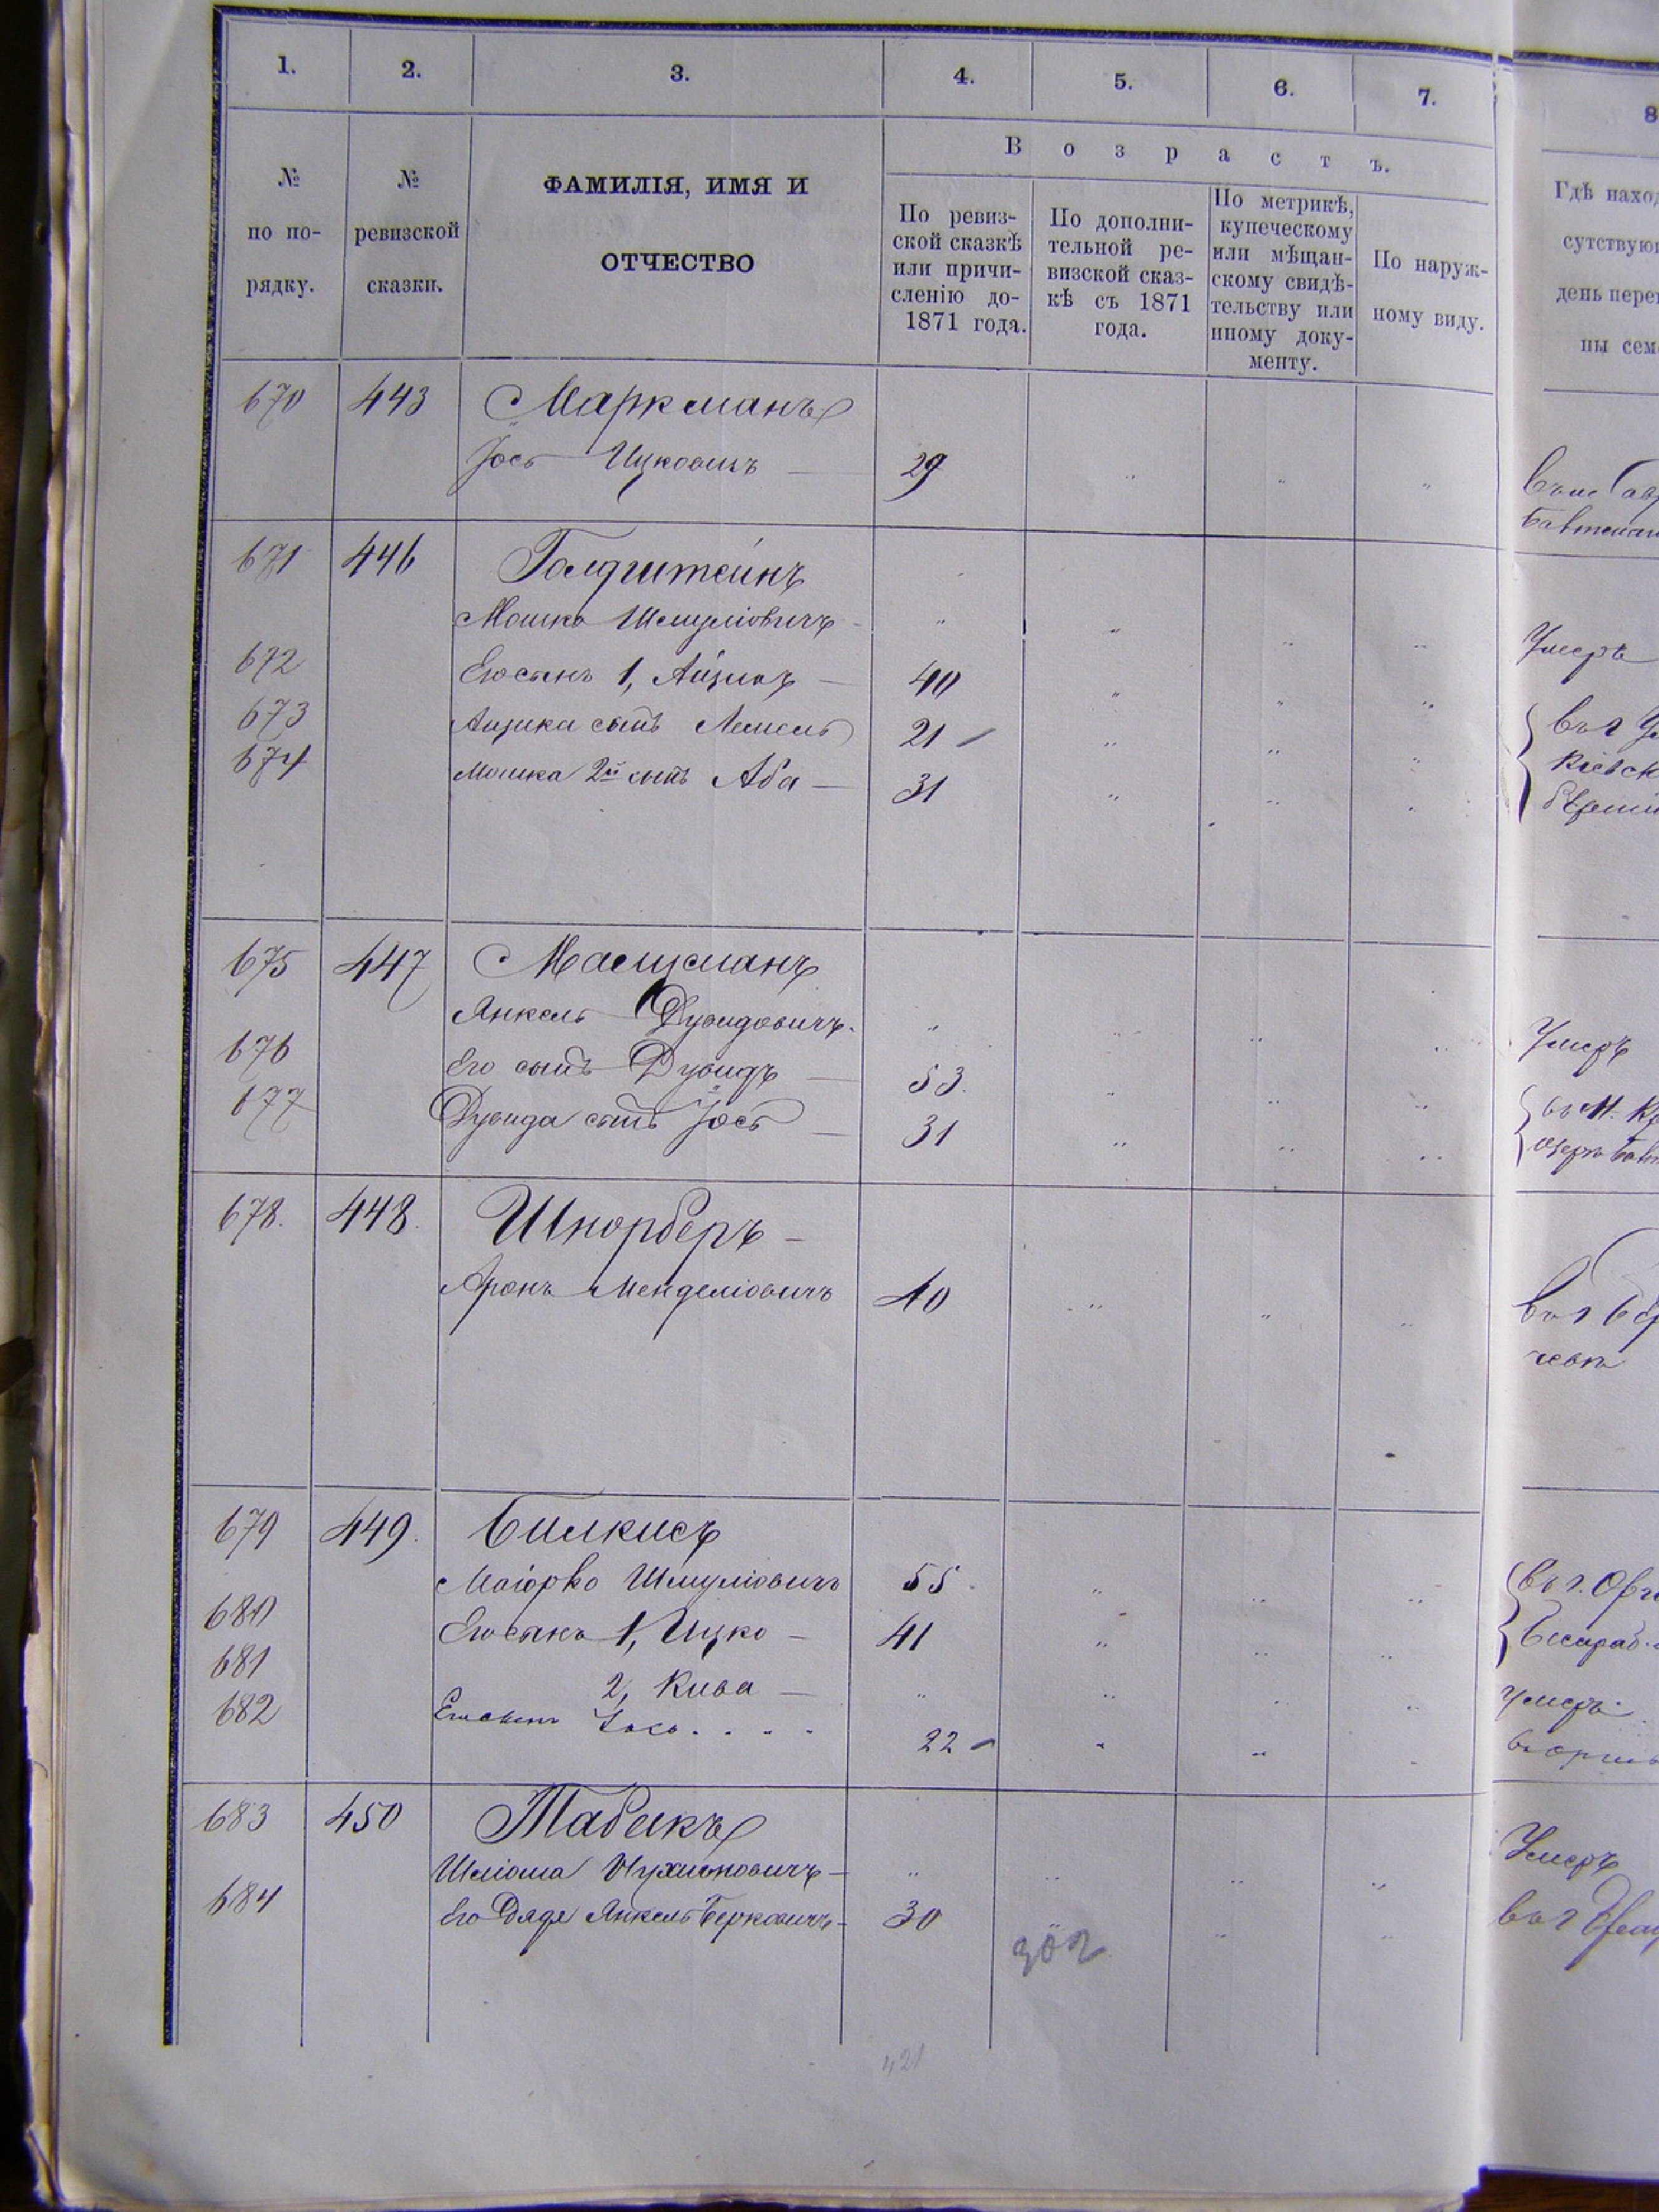 1. 2. 3. 4. 5. 6. 7. 8
Возрастъ.
№ по по-рядку.
№ ревизской сказки.
ФАМИЛІЯ, ИМЯ И
ОТЧЕСТВО
По ревиз-
ской сказкѣ
или причи-
сленію до-
1871 года.
По дополни-
тельной ре-
визской сказ-
кѣ съ 1871
года.
По метрикѣ,
купеческому
или мѣщан-
скому свидѣ-
тельству или
иному доку-
менту.
По наруж-
ному виду.
Гдѣ наход
сутствую
день пере
ны сем
670 443 Маркманъ
Іось Ицковичъ 29
671 446 Голдштейнъ
Мошко Шмуліовичъ Умеръ
672 Его сынъ 1, Айзикъ 40
673 Айзика сынъ Лемель 21
674 Мошка 2й сынъ Аба 31
675 447
Янкель Дувидовичъ Умеръ
676 Его сынъ Дувидъ 53.
677 Дувида сынъ Іось 31
678. 448. Шнорберъ
Аронъ Менделіовичъ 40
679 449. Билкисъ
Маіорко Шмуліовичъ 55
680 Его сынъ 1, Ицко 41
681 2, Кива умеръ
682 Его сынъ 22
683 450 Табакъ
Шліома Нухимовичъ Умеръ
684 Его дядя Янкель Берковичъ 30
302
421